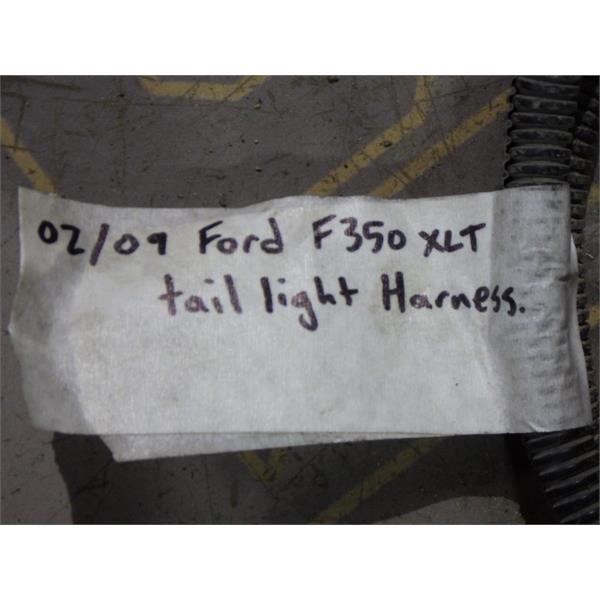 02/09 Ford F350 XLT
tail light Harness.